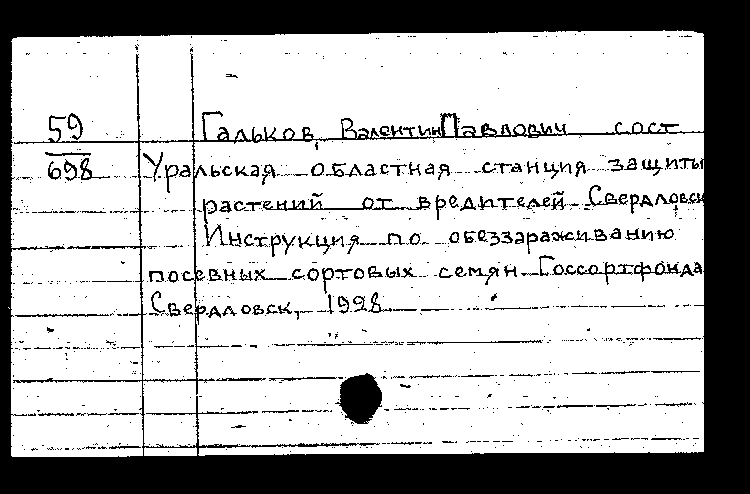 59
698
Гальков, Валентин Павлович сост
Уральская областная станция защиты
растений от вредителей. Свердловск
Инструкция по обеззараживанию
посевных сортовых семян Госсортфонда
Свердловск, 1928